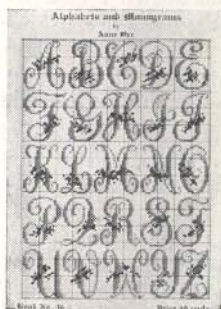 Alphabets and Monograms
by
Anne Orr
A B C D E
F G H I J
K L M N O
P Q R S T
Book No.
Price cents